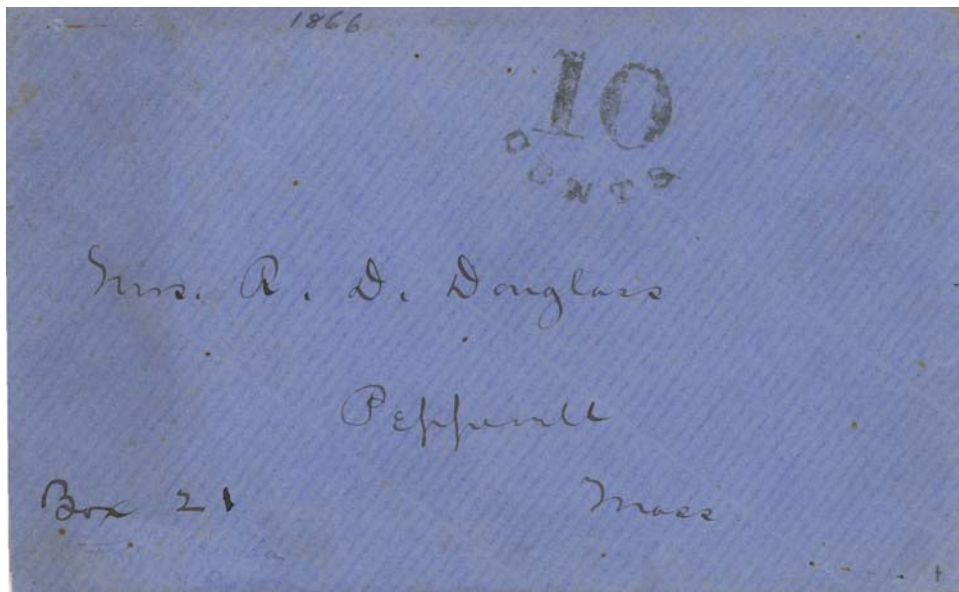 1866
10
CENTS
Mrs. R. D. Douglass
Pepperell
Box 21 Mass